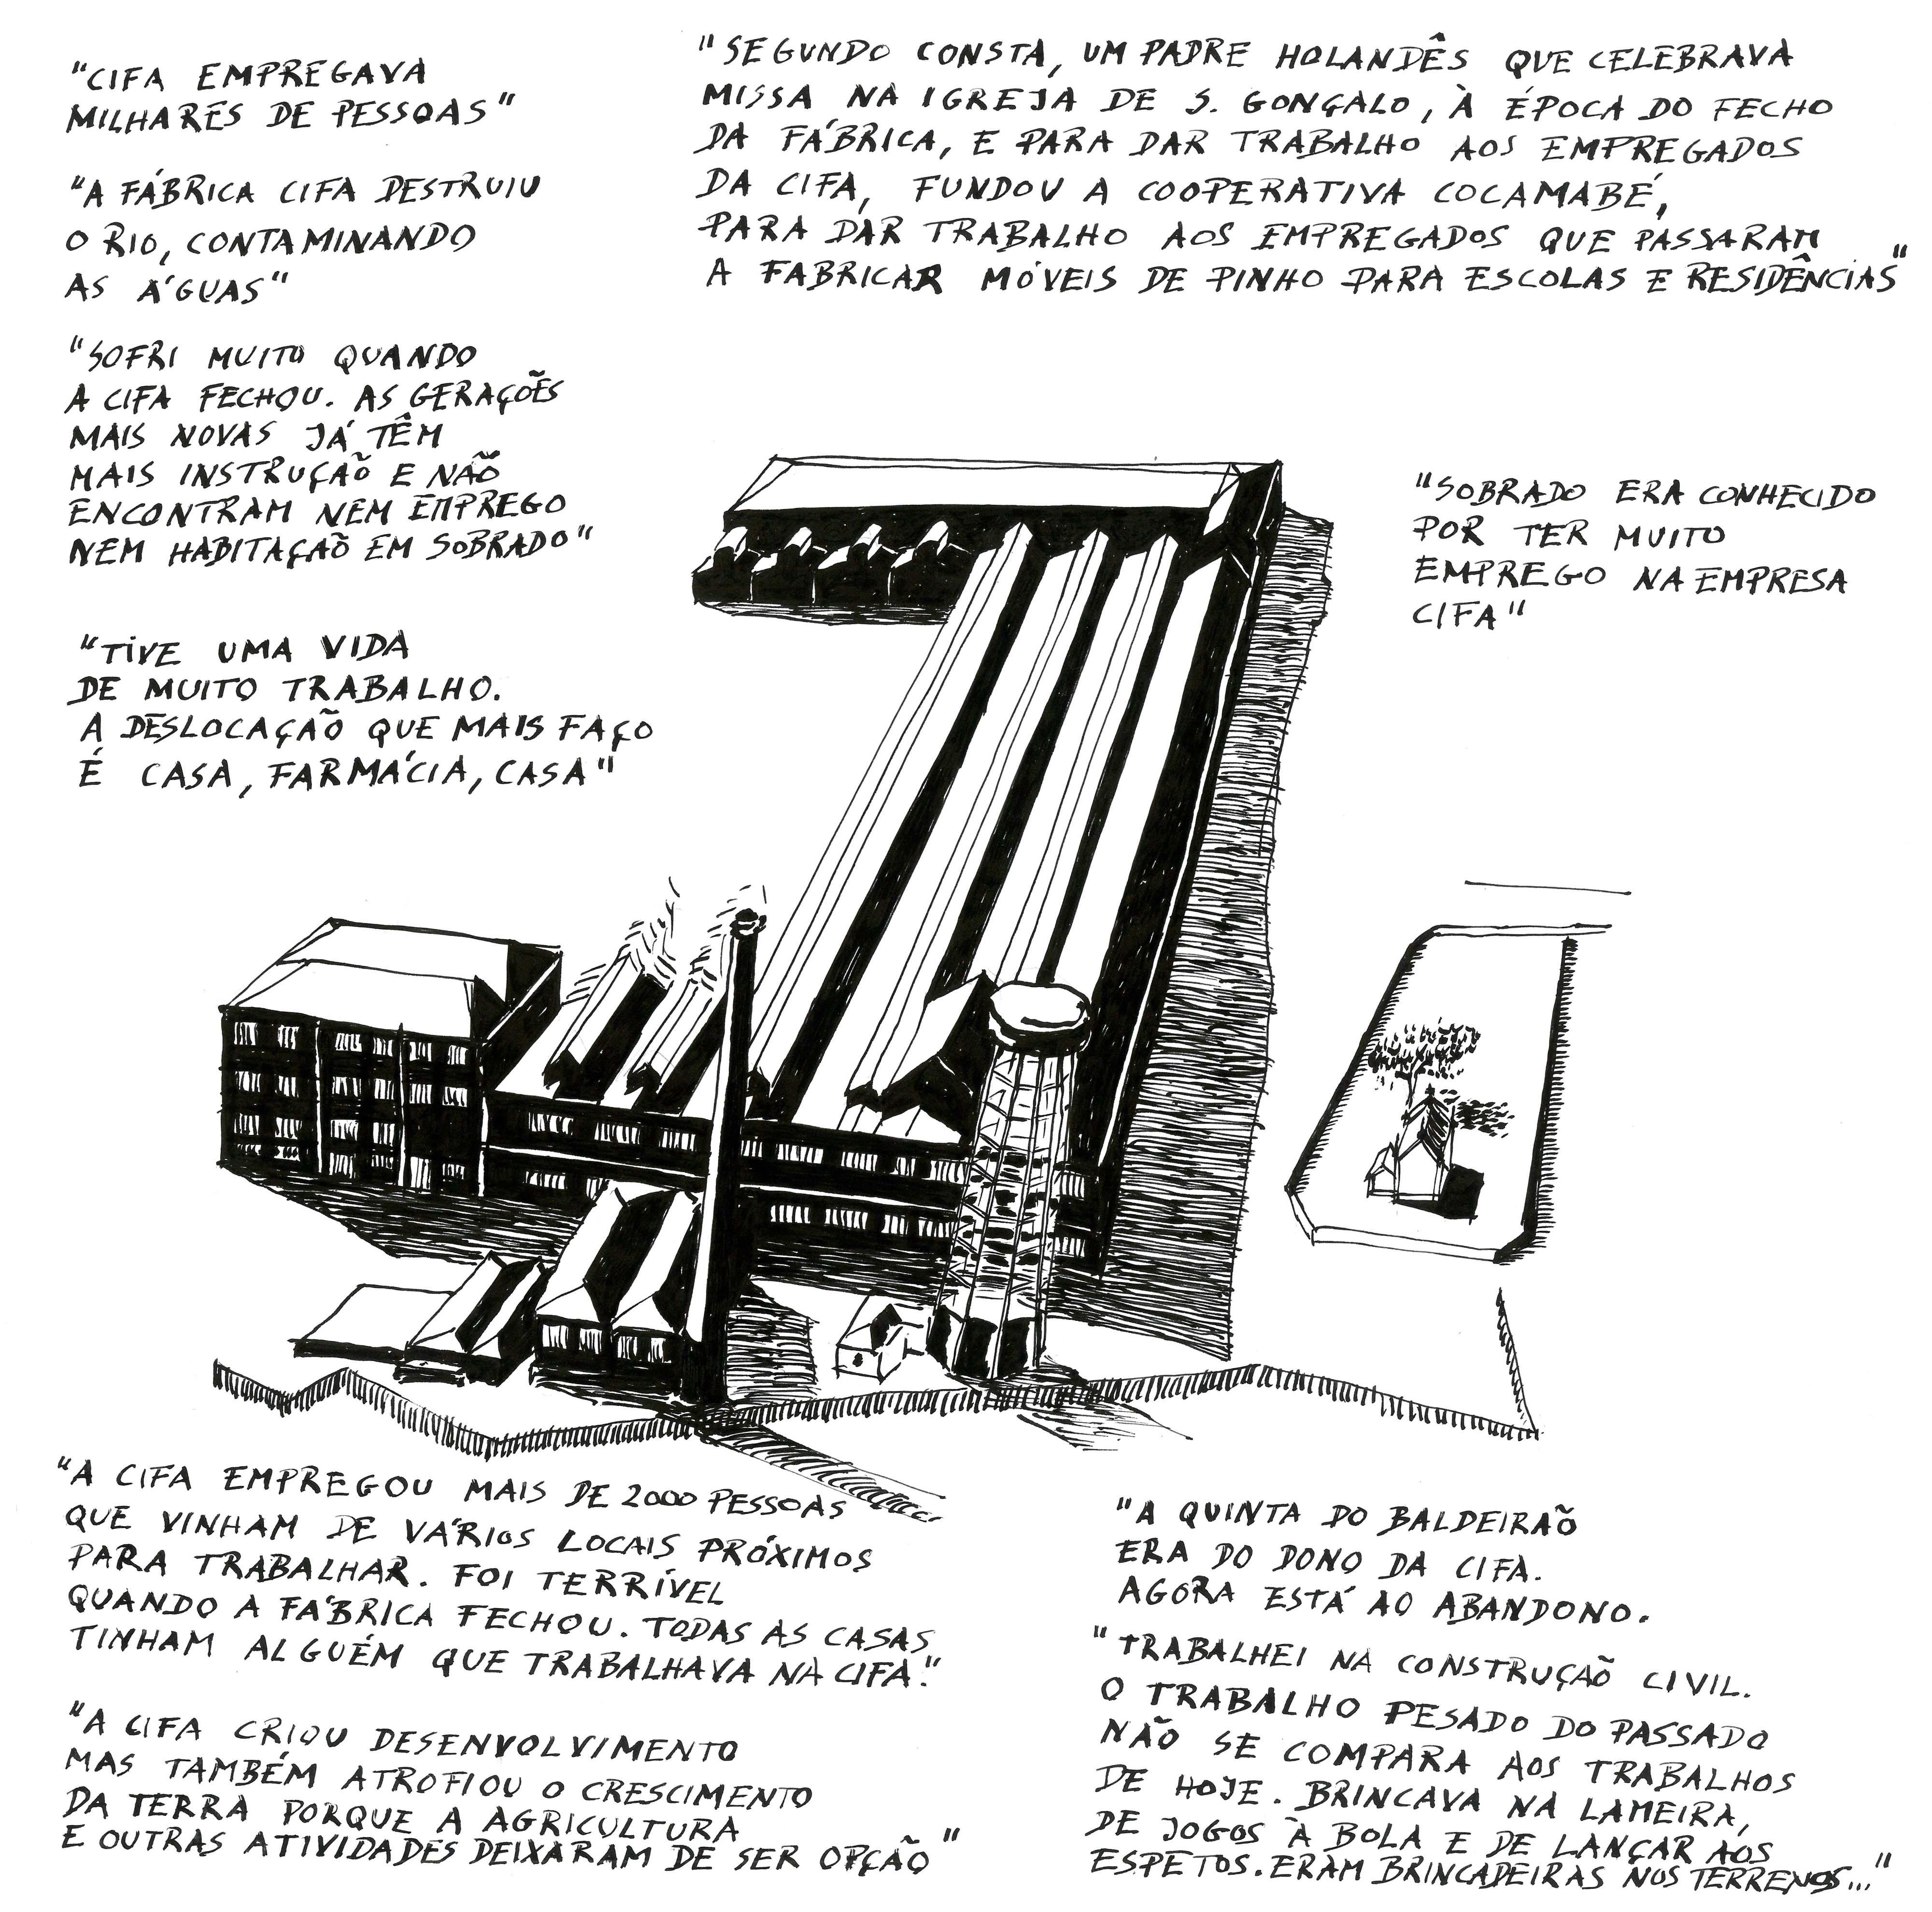 "CIFA EMPREGAVA
MILHARES DE PESSOAS"
"A FÁBRICA CIFA DESTRUIU
O RIO, CONTAMINANDO
AS ÁGUAS"
"SOFRI MUITO QUANDO
A CIFA FECHOU. AS GERAÇÕES
MAIS NOVAS JÁ TÊM
MAIS INSTRUÇÃO E NÃO
ENCONTRAM NEM EMPREGO
NEM HABITAÇÃO EM SOBRADO"
"TIVE UMA VIDA
DE MUITO TRABALHO.
A DESLOCAÇÃO QUE MAIS FAÇO
É CASA, FARMÁCIA, CASA"
"SEGUNDO CONSTA, UM PADRE HOLANDÊS QUE CELEBRAVA
MISSA NA IGREJA DE S. GONÇALO, À ÉPOCA DO FECHO
DA FÁBRICA, E PARA DAR TRABALHO AOS EMPREGADOS
DA CIFA, FUNDOU A COOPERATIVA COCAMABÉ,
PARA DAR TRABALHO AOS EMPREGADOS QUE PASSARAM
A FABRICAR MÓVEIS DE PINHO PARA ESCOLAS E RESIDÊNCIAS"
"SOBRADO ERA CONHECIDO
POR TER MUITO
EMPREGO NA EMPRESA
CIFA"
"A CIFA EMPREGOU MAIS DE 2000 PESSOAS
QUE VINHAM DE VÁRIOS LOCAIS PRÓXIMOS
PARA TRABALHAR. FOI TERRÍVEL
QUANDO A FÁBRICA FECHOU. TODAS AS CASAS
TINHAM ALGUÉM QUE TRABALHAVA NA CIFA."
"A CIFA CRIOU DESENVOLVIMENTO
MAS TAMBÉM ATROFIOU O CRESCIMENTO
DA TERRA PORQUE A AGRICULTURA
E OUTRAS ATIVIDADES DEIXARAM DE SER OPÇÃO"
"A QUINTA DO BALDEIRÃO
ERA DO DONO DA CIFA.
AGORA ESTÁ AO ABANDONO.
"TRABALHEI NA CONSTRUÇÃO CIVIL.
O TRABALHO PESADO DO PASSADO
NÃO SE COMPARA AOS TRABALHOS
DE HOJE. BRINCAVA NA LAMEIRA,
DE JOGOS À BOLA E DE LANÇAR AOS
ESPETOS. ERAM BRINCADEIRAS NOS TERRENOS..."